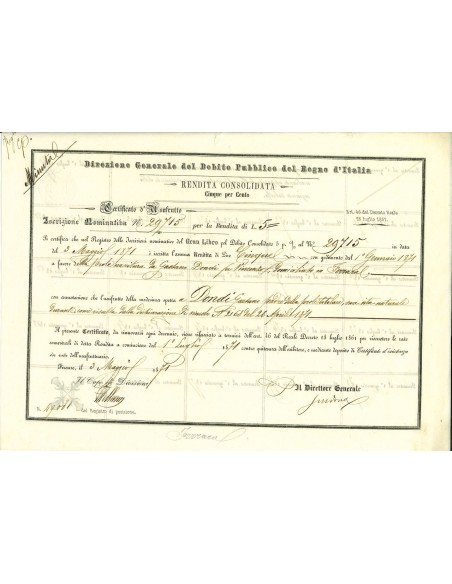 Direzione Generale del Debito Pubblico del Regno d'Italia
RENDITA CONSOLIDATA
Cinque per Cento
Certificato d'Usufrutto
Iscrizione Nominativa N. 29715 per la Rendita di L. 5
Si certifica che sul Registro delle Iscrizioni nominative del Gran Libro pel Debito Consolidato 5 p. %, al N. 29715 in data
del 3 Maggio 1871 è iscritta l'annua Rendita di Lire Cinque con godimento del 1° Gennaio 1871
a favore della prole nascitura da Gaetano Dondi fu Vincenzo, domiciliato in Ferrara
con annotazione che l'usufrutto della medesima spetta a Dondi Gaetano
Il presente Certificato, da rinnovarsi ogni decennio, dovrà rilasciarsi a termini dell'art. 16 del Reale Decreto 18 luglio 1861 per riscuotere le rate
semestrali di detta Rendita a cominciare del 1° Luglio 1871 contro quitanza dell'esibitore, e mediante deposito di Certificati d'esistenza
in vita dell'usufruttuario.
Firenze, il 3 Maggio 1871
Il Capo di Divisione
Il Direttore Generale
del Registro di posizione.